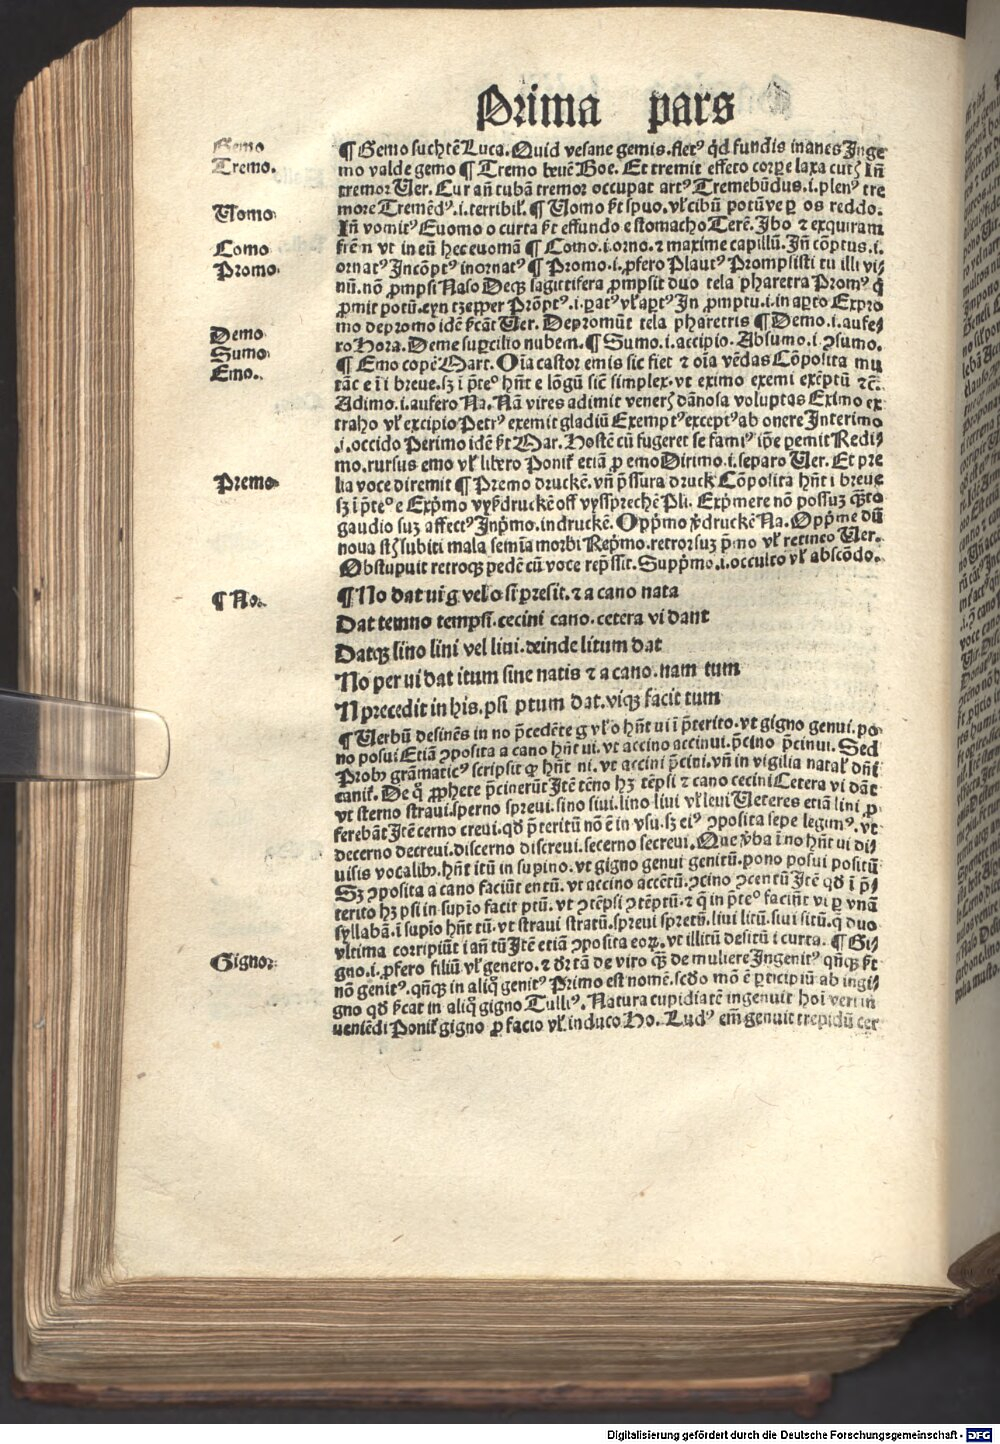 Prima pars
Gemo
¶ Gemo suchtē Luca. Quid vesane gemis. fletꝰ qd fundis inanes Inge
Tremo.
mo valde gemo ¶ Tremo beuē Boe. Et tremit effeto corpe laxa cut Iñ
tremor Uer. Cur añ tubā tremor occupat artꝰ Tremebūdus .i. plenꝰ tre
Uomo
more Tremēdꝰ .i. terribil. ¶ Uomo spuo. vl cibū potūve p os reddo.
Iñ vomitꝰ Euomo o curta effundo e stomacho Terē. Ibo ⁊ exquiram
Como
frēn vt in eū hec euomā ¶ Como .i. orno. ⁊ maxime capillū. Iñ cōptus .i.
Promo
ornatꝰ Incōptꝰ inornatꝰ ¶ Promo .i. ꝓfero Plautꝰ Prompsisti tu illi vi/
nū. nō ꝓmpsi Naso Deqꝫ sagittifera ꝓmpsit duo tela pharetra Promꝰ q
ꝓmit potū. Prōptꝰ .i. patꝰ vl aptꝰ In ꝓmptu .i. in apto Expro
Demo
mo depromo idē Uer. Depromūt tela pharetris ¶ Demo .i. aufe/
Sumo
ro Hora. Deme supcilio nubem. ¶ Sumo .i. accipio. Absumo .i. ꝯsumo.
Emo.
¶ Emo Mart. Oīa castor emis sic fiet ⁊ oīa vēdas Cōposita mu
tāc e ī i breue. sꝫ i p̄teº hn̄t e lōgū sic̄ simplex. vt eximo exemi exēptū ⁊c̄.
Adimo .i. aufero Na. Nā vires adimit venerꝭ dānosa voluptas Eximo ex
traho vl excipio Petrꝰ exemit gladiū Exemptꝰ exceptꝰ ab onere Interimo
.i. occido Perimo idē Mar. Hostē cū fugeret se famiꝰ ip̄e pemit Redi/
mo. rursus emo vl libero Ponit etiā ꝓ emo Dirimo .i. separo Uer. Et pre
Premo
lia voce diremit ¶ Premo druckē. vn̄ p̄ssura druck Cōposita hn̄t i breue
sꝫ i p̄teº e Exp̄mo off vyssprechē Pli. Exp̄mere nō possuꝫ
gaudio suꝫ affectꝰ Inp̄mo. indruckē. Opp̄mo druckē Na. Opp̄me dū
noua subiti mala semīa morbi Rep̄mo. retrorsuꝫ p̄mo vl retineo Uer.
Obstupuit retroqꝫ pedē cū voce rep̄ssit. Supp̄mo .i. occulto vl abscōdo.
¶ No.
¶ No dat vi g vel o si presit. ⁊ a cano nata
Dat temno tempsi. cecini cano. cetera vi dant
Datqꝫ lino lini vel liui. deinde litum dat
No per vi dat itum sine natis ⁊ a cano. nam tum
N precedit in his. psi ptum dat. viqꝫ facit tum
¶ Uerbū desinēs in no p̄cedēte g vl o hn̄t ui i p̄terito. vt gigno genui. po
no posui Etiā ꝯposita a cano hn̄t ui. vt accino accinui. p̄cino p̄cinui. Sed
Probꝰ grāmaticꝰ scripsit ꝙ hn̄t ni. vt accini p̄cini. vn̄ in vigilia natal dn̄i
canit. De q̄ ꝓphete p̄cinerūt Itē tēno hꝫ tēpsi ⁊ cano cecini Cetera vi dāt
vt sterno straui. sperno spreui. sino siui. lino liui vl leui Ueteres etiā lini ꝓ
ferebāt Itē cerno creui. qd p̄teritū nō ē in vsu. sꝫ eiꝰ ꝯposita sepe legimꝰ. vt
decerno decreui. discerno discreui. secerno secreui. Que v̄ba ī no hn̄t ui di/
uisis vocalibꝰ. hn̄t itū in supino. vt gigno genui genitū. pono posui positū
Sꝫ ꝯposita a cano faciūt entū. vt accino accētū. ꝯcino ꝯcentū Itē qd i p̄/
terito hꝫ psi in supīo facit ptū. vt ꝯtēpsi ꝯtēptū. ⁊ q̄ in p̄teº faciūt vi ꝑ vnā
syllabā. ī supio hn̄t tū. vt straui stratū. spreui spretū. liui litū. siui sitū. q̄ duo
Gigno
vltima corripiūt i añ tū Itē etiā ꝯposita eoꝝ. vt illitū desitū i curta. ¶ Gi/
gno .i. ꝓfero filiū vl genero. ⁊ dr̄ tā de viro qꝫ de muliere Ingenitꝰ qn̄qꝫ
nō genitꝰ. qn̄qꝫ in aliq̄ genitꝰ Primo est nomē. sc̄do mō ē pticipiū ab ingi/
gno qd in aliq̄ gigno Tulliꝰ. Natura cupiditatē ingenuit hoī veri in
ueniēdi Ponit gigno ꝓ facio vl induco Ho. Ludꝰ em̄ genuit trepidū cer
Digitalisierung gefördert durch die Deutsche Forschungsgemeinschaft - DFG